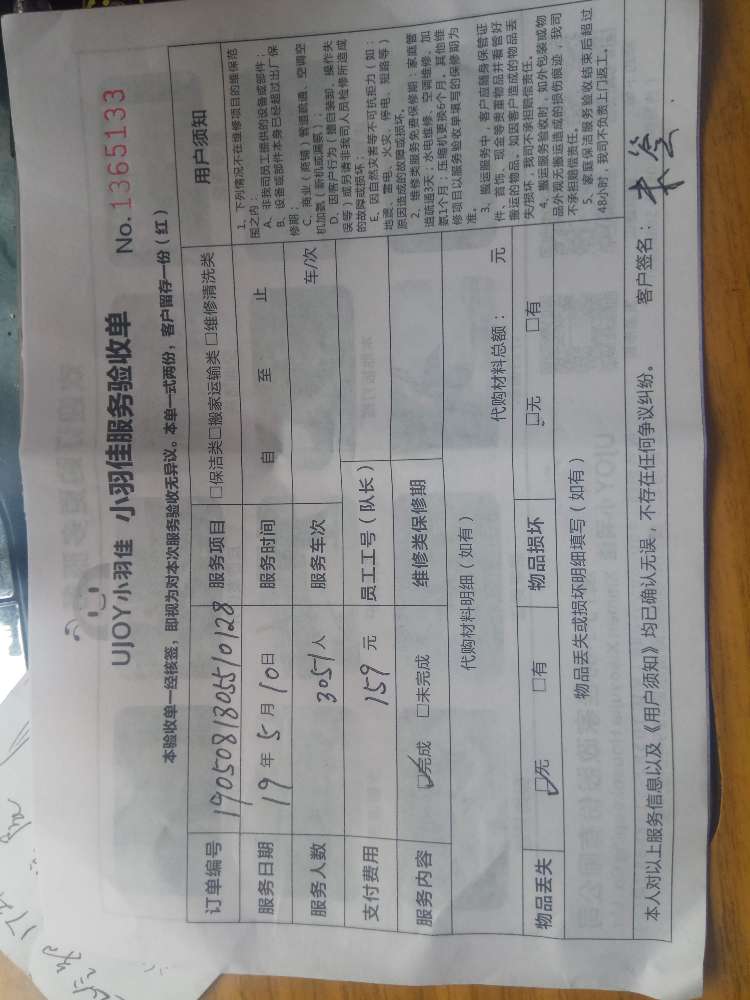 UJOY小羽佳 小羽佳服务验收单 No.1365133
本验收单一经核签，即视为对本次服务验收无异议。本单一式两份，客户留存一份（红）
订单编号 190508180551 0128 服务项目 □保洁类□搬家运输类 □维修清洗类
服务日期 19年5月10日 服务时间 自 至 止
服务人数 3051人 服务车次 车/次
支付费用 159元 员工工号（队长）
服务内容 ☑完成 □未完成 维修类保修期
代购材料明细（如有） 代购材料总额： 元
物品丢失 ☑无 □有 物品损坏 □无 □有
物品丢失或损坏明细填写（如有）
用户须知
1、下列情况不在维修项目的维保范
围之内：
A、非我司员工提供的设备或部件；
B、设备或部件本身已经超过出厂保
修期；
C、商业（商铺）管道疏通、空调空
机加氨（新机或漏氨）；
D、因客户行为（擅自装卸、操作失
误等）或另请非我司人员检修所造成
的故障或损坏；
E、因自然灾害等不可抗拒力（如：
地震、雷电、火灾、停电、短路等）
原因造成的故障或损坏。
2、维修类服务免费保修期：家庭管
道疏通3天；水电维修、空调维修、加
氨1个月；压缩机更换6个月。其他维
修项目以服务验收单填写的保修期为
准。
3、搬运服务中，客户应随身保管证
件、首饰、现金等贵重物品并看管好
搬运的物品，如因客户造成的物品丢
失/损坏，我司不承担赔偿责任。
4、搬运服务验收时，如外包装或物
品外观无搬运造成的损伤痕迹，我司
不承担赔偿责任。
5、家庭保洁服务验收结束后超过
48小时，我司不负责上门返工。
本人对以上服务信息以及《用户须知》均已确认无误，不存在任何争议纠纷。 客户签名：